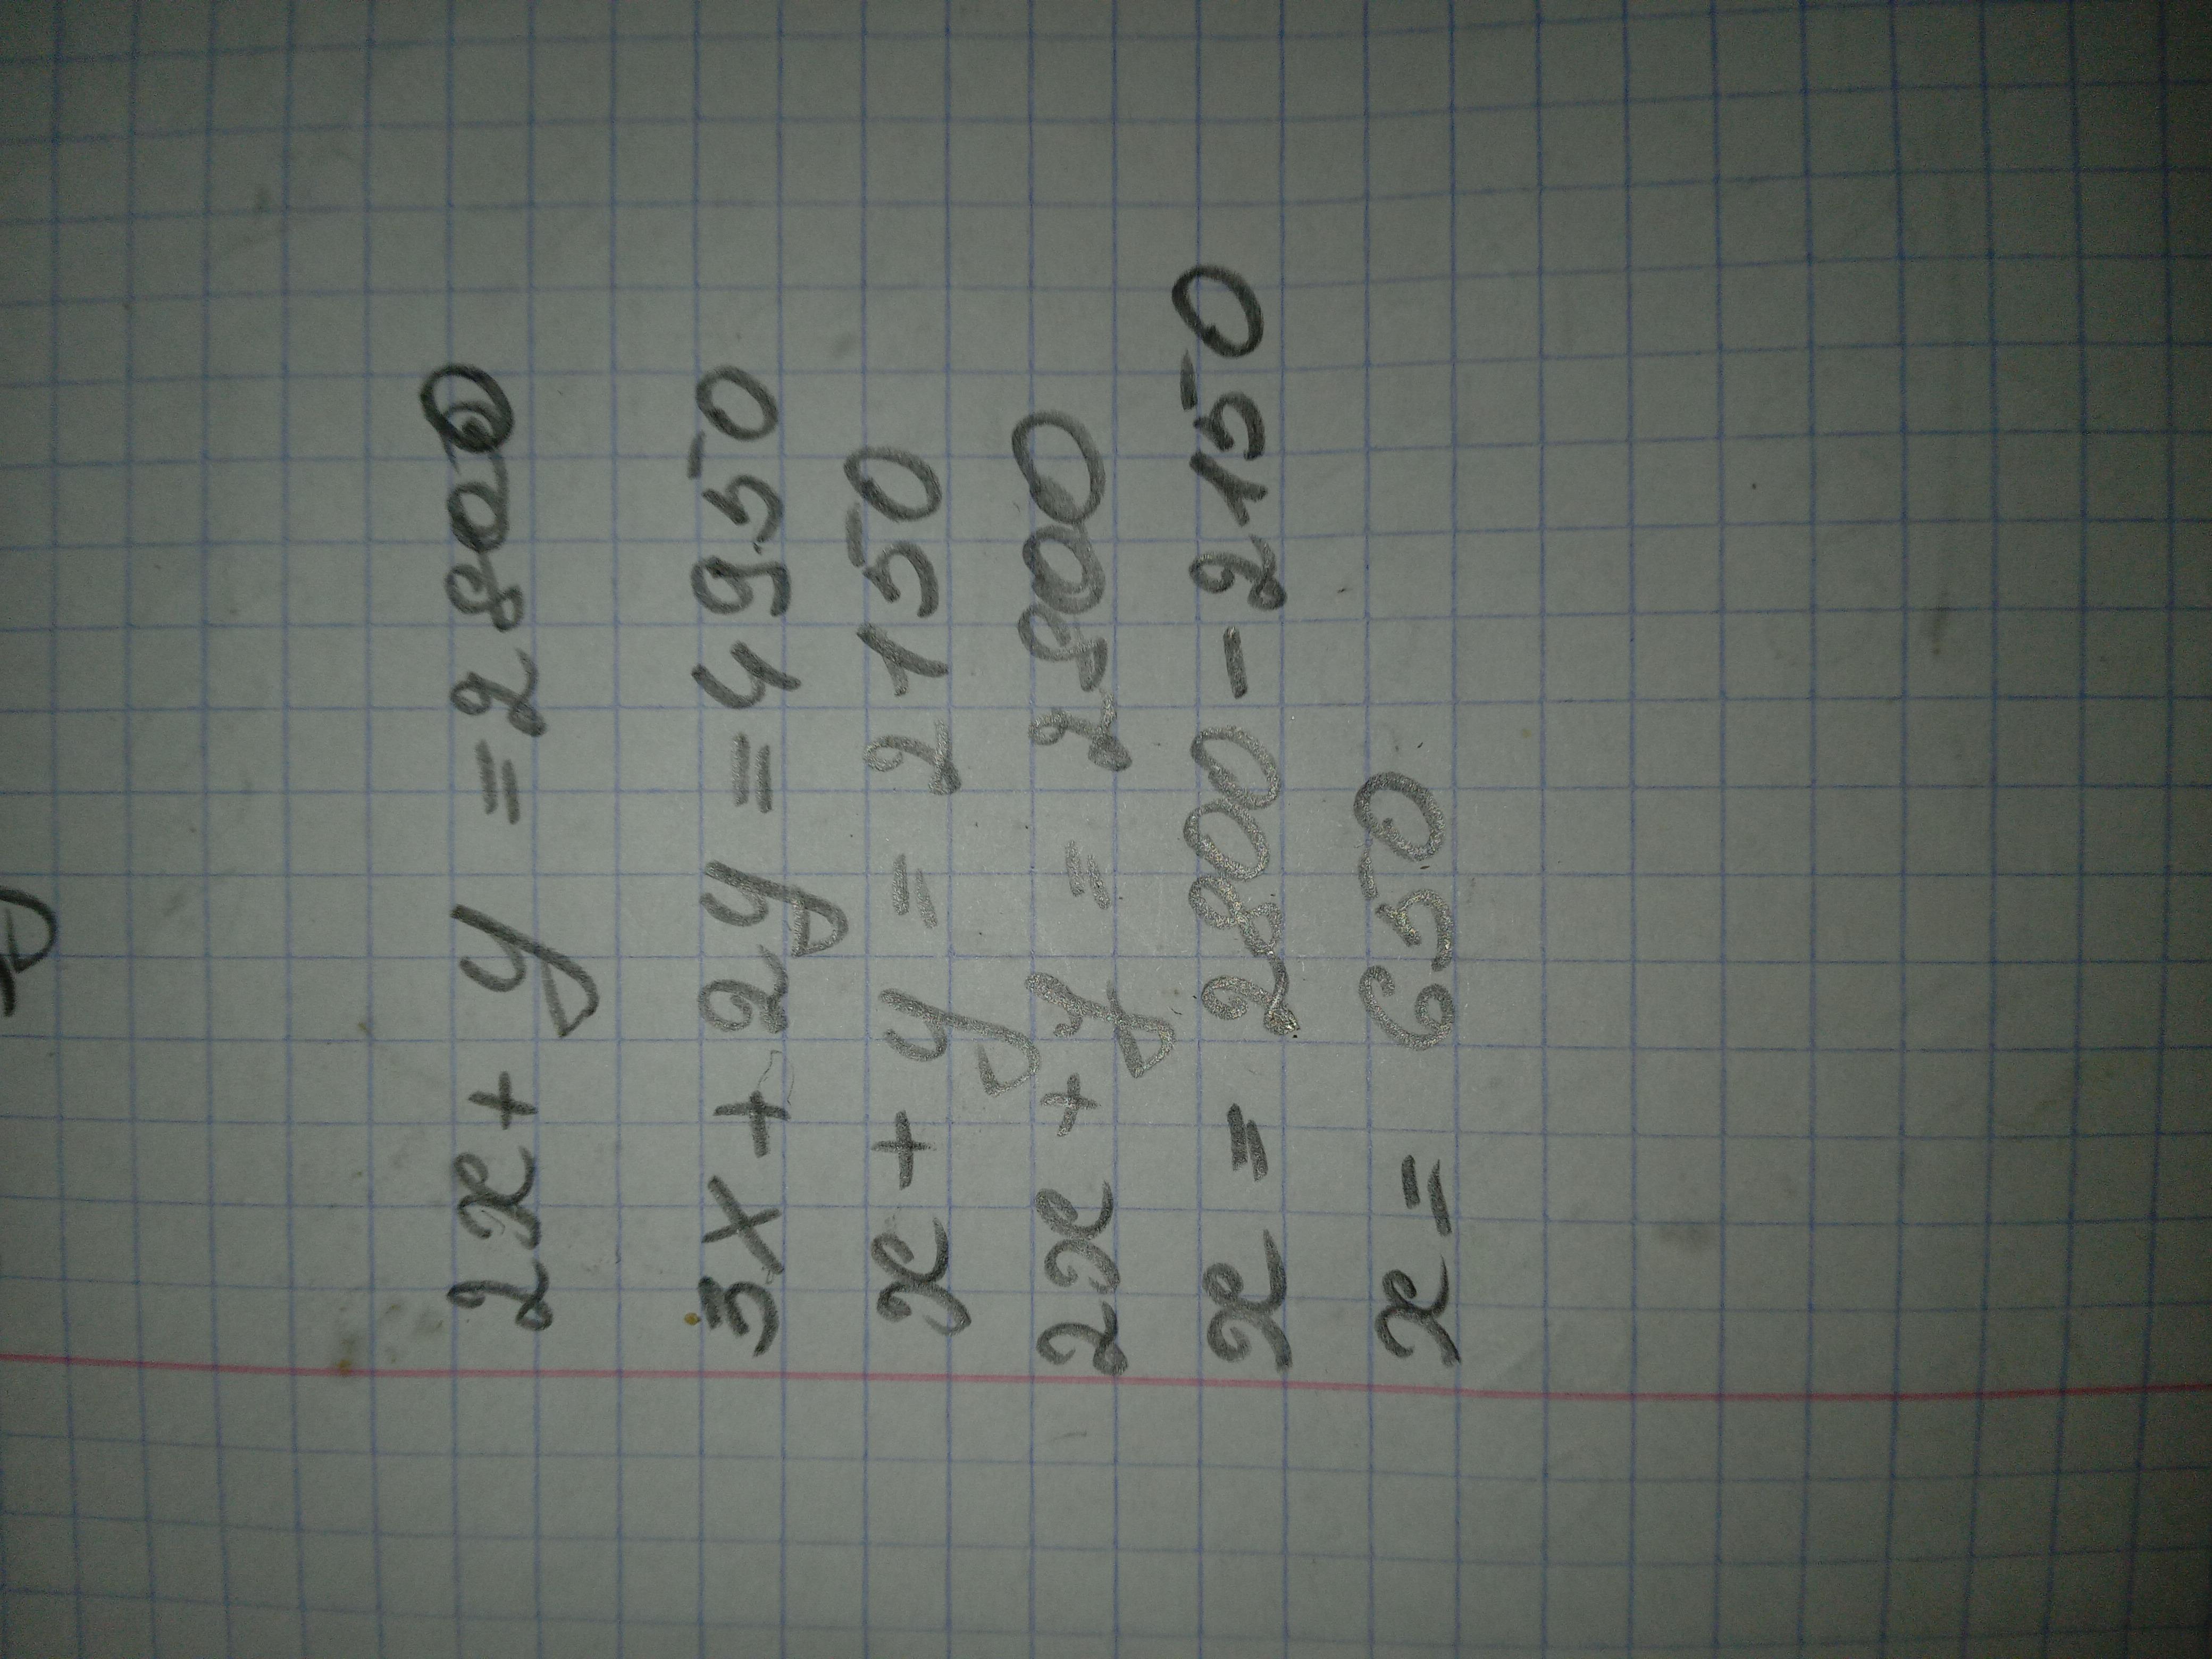 2x + y = 2800
3x + 2y = 4950
x + y = 2150
2x + y = 2800
x = 2800 - 2150
x = 650